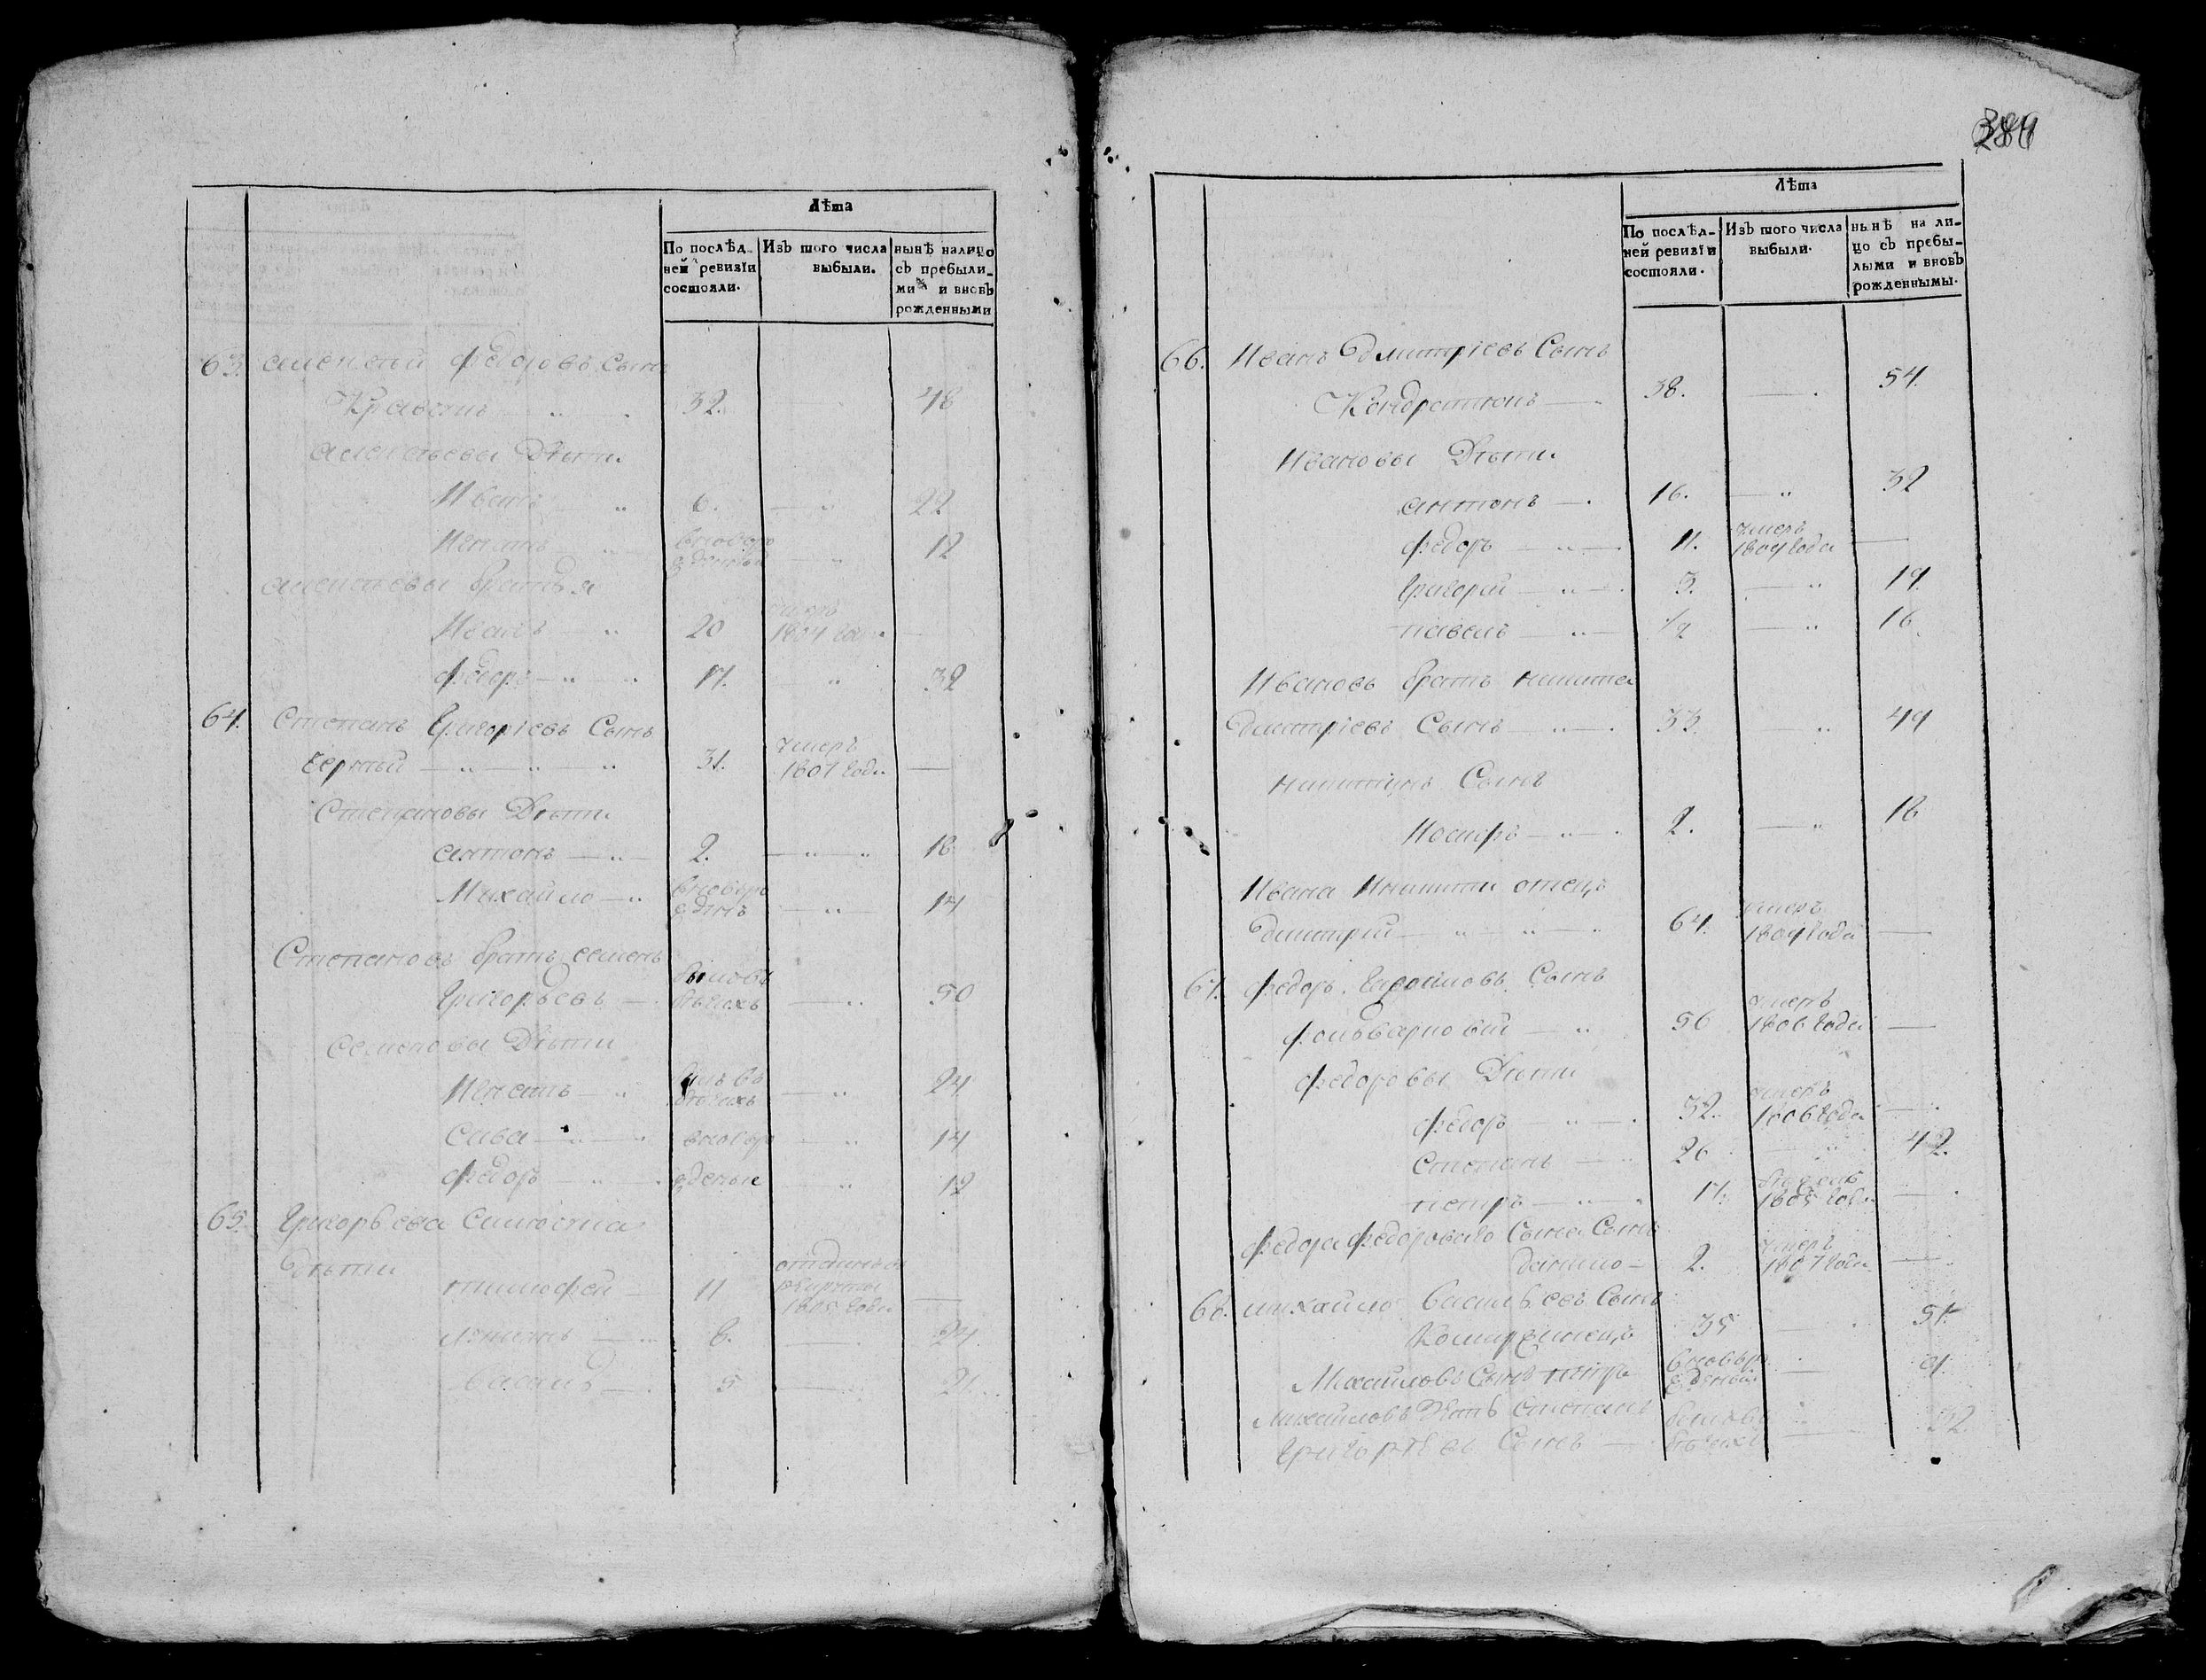 Лѣта
По послѣд-
ней ревизіи
состояли.
Изъ того числа
выбыли.
нынѣ налицо
съ пребыли-
ми и вновь
рожденными
63. Федоровъ Сынъ
Кравецъ 32. 48
Дѣти
Иванъ 6. 22
Игнатъ 12
братья
Иванъ 20 умеръ
1804 года
Федоръ 17. 32
64. Степанъ Григоріевъ Сынъ
Черный 31. умеръ
1807 года
Степановы Дѣти
антонъ 2. 18
Михайло вновь ро
жденъ 14
Степановъ братъ семенъ
Григорьевъ былъ въ
бѣгахъ 50
Семеновы Дѣти
Игнатъ былъ въ
бѣгахъ 24
Сава вновь ро 14
Федоръ жденые 12
65. Григорьева
дѣти
тимофей 11
рекруты
года
8. 24.
5 21.
Лѣта
По послѣд-
ней ревизіи
состояли.
Изъ того числа
выбыли.
нынѣ на ли-
цо съ пребы-
лыми и вновь
рожденнымы.
66. Иванъ Дмитріевъ Сынъ
Кондратюкъ 38. 54.
Ивановы Дѣти
антонъ 16. 32
Федоръ 11. умеръ
1809 года
Григорій 3. 19
павелъ 1/2 16
Ивановъ братъ никита
Дмитріевъ Сынъ 33. 49
никитинъ Сынъ
Іосифъ 2. 18
Ивана Иникиты отецъ
Дмитрій 64. умеръ
1804 года
67. Федоръ Сынъ
фольварковій 56 умеръ
1806 года
Федоровы Дѣти
Федоръ 32. умеръ
1806 года
Степанъ 26 42.
петръ 17.
1805 года
Федора Федороваго Сына Сынъ
данило 2. умеръ
1807 года
68. михайло Васильевъ Сынъ
35 51.
Михайловъ Сынъ петръ вновь ро
жденый
Михайловъ Зять Степанъ былъ въ
Григорьевъ Сынъ бѣгахъ 32.